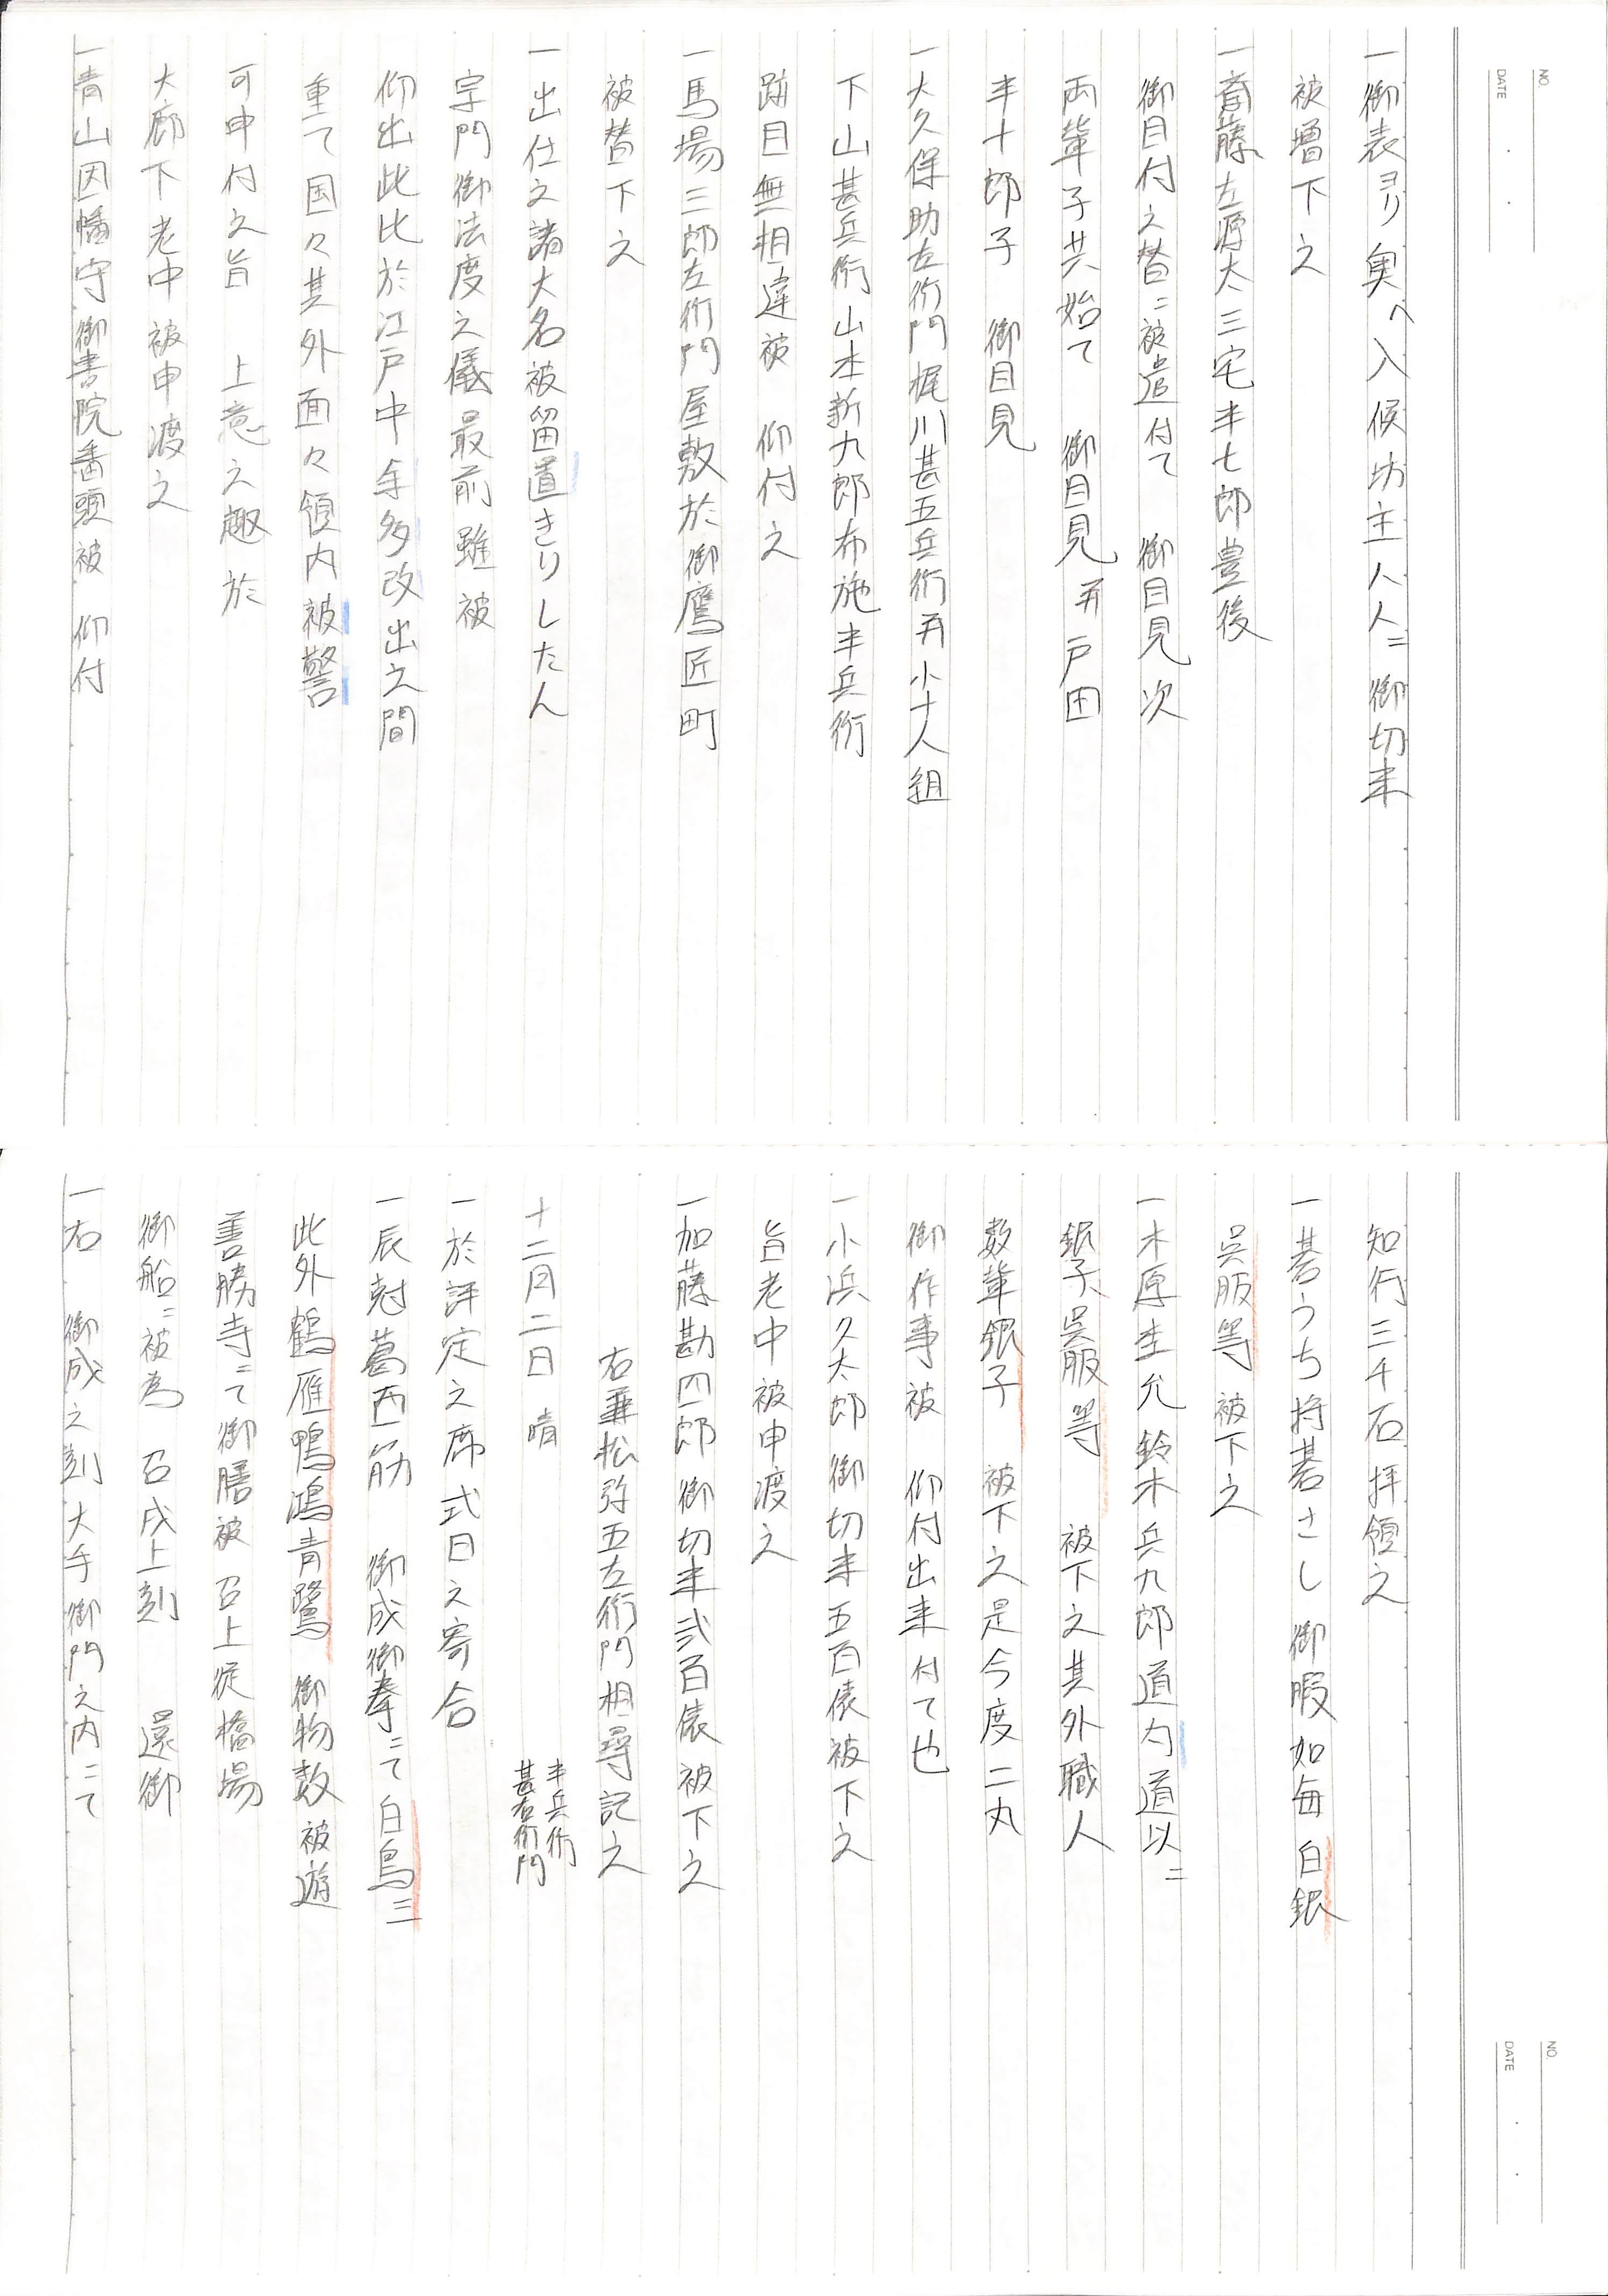 NO.
DATE
一御表ヨリ奥へ入候坊主八人ニ御切米
被増下之
一斎藤左源太三宅半七郎豊後
御目付之替ニ被遣付て 御目見次
両輩子共始て 御目見并戸田
半十郎子 御目見
一大久保助左衛門梶川甚五兵衛并小十人組
下山甚兵衛山本新九郎布施半兵衛
跡目無相違被 仰付之
一馬場三郎左衛門屋敷於御鷹匠町
被替下之
一出仕之諸大名被留置きりしたん
宗門御法度之儀最前雖被
仰出此比於江戸中余多改出之間
重て国々其外面々領内被警
可申付之旨 上意之趣於
大廊下老中被申渡之
一青山因幡守御書院番頭被 仰付
NO.
DATE
知行三千石拝領之
一碁うち将碁さし御暇如毎白銀
呉服等被下之
一木原杢允鈴木兵九郎道内道以ニ
銀子呉服等 被下之其外職人
数輩銀子 被下之是今度二丸
御作事被 仰付出来付て也
一小浜久太郎御切米五百俵被下之
旨老中被申渡之
一加藤勘四郎御切米弐百俵被下之
右兼松弥五左衛門相尋記之
十二月二日 晴 半兵衛
甚右衛門
一於評定之席式日之寄合
一辰剋葛西筋 御成御拳ニて白鳥三
此外鶴雁鴨鴻青鷺御物数被遊
善勝寺ニて御膳被 召上従橋場
御船ニ被為 召戌上刻 還御
一右 御成之刻大手御門之内ニて